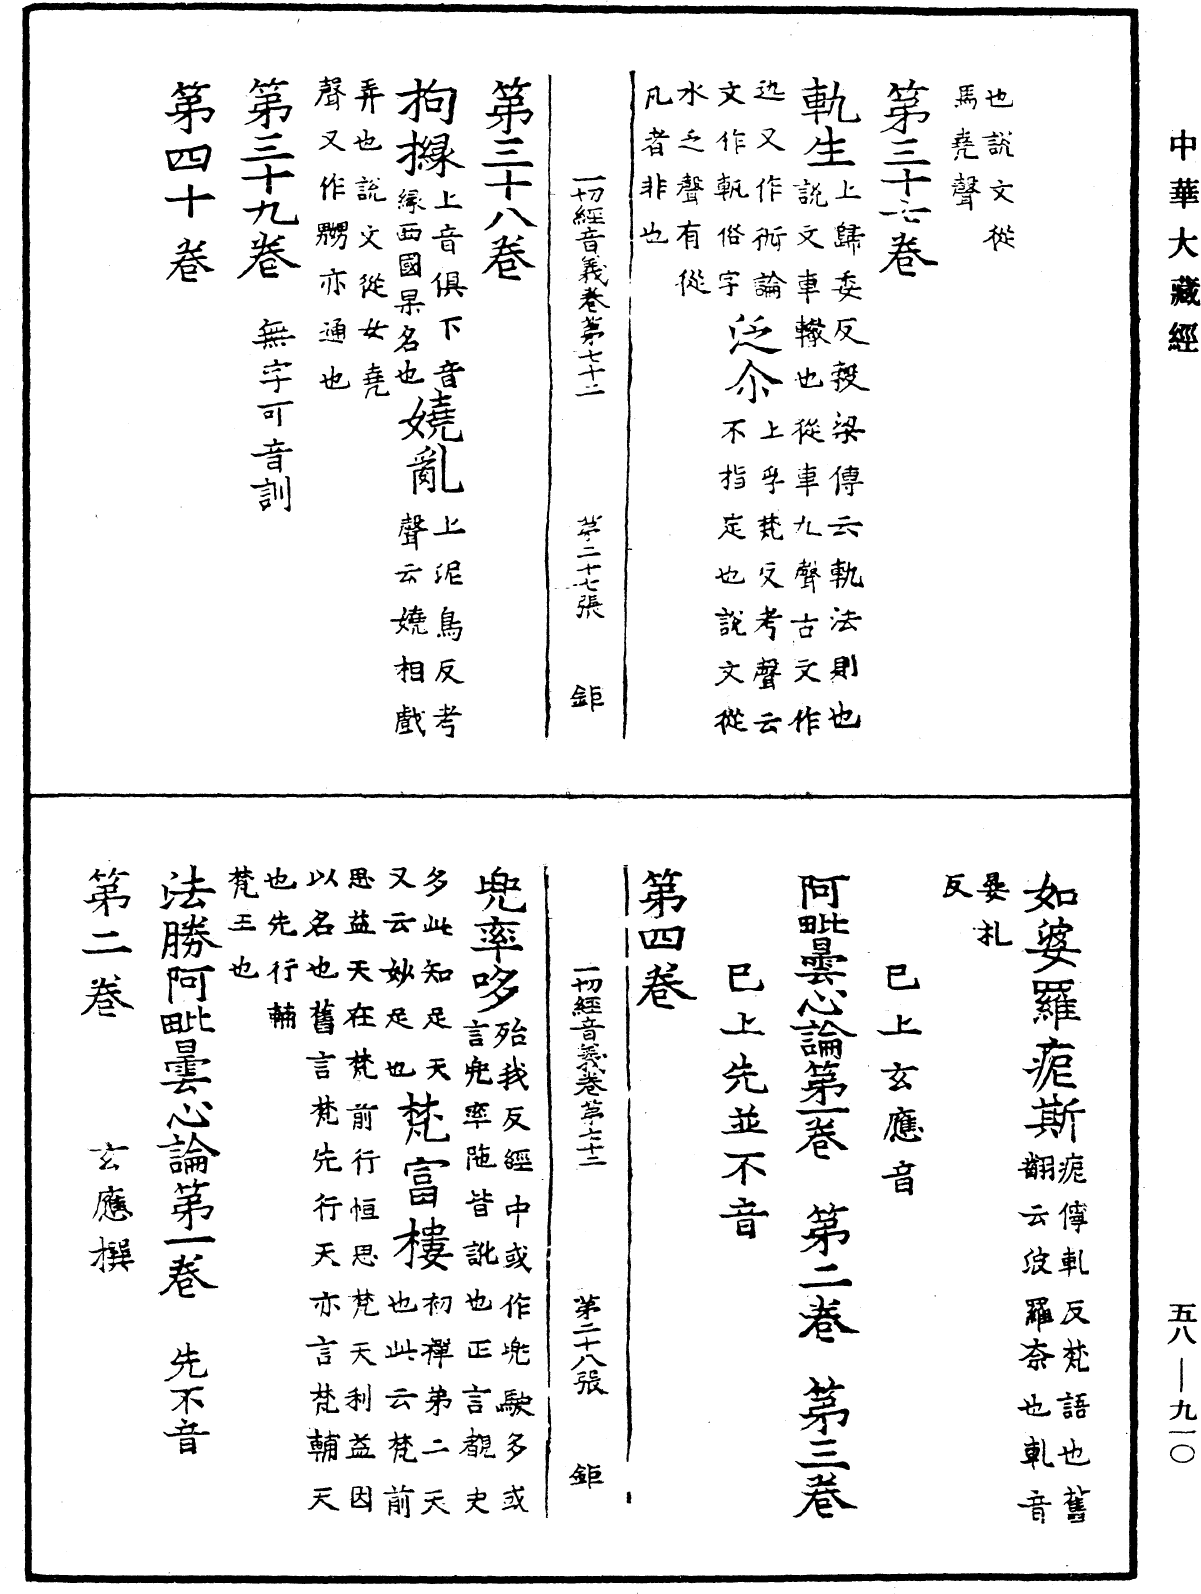 中華大藏經
也說文從
馬堯聲
第三十七卷
軌生上歸委反穀梁傳云軌法則也
說文車轍也從車九聲古文作
迒又作𧗝論
文作軏俗字
泛尒上孚梵反考聲云
不指定也說文從
水乏聲有從
凡者非也
一切經音義卷第七十二 第二十七張 鉅
第三十八卷
拘櫞上音俱下音
緣西國果名也
嬈亂上泥鳥反考
聲云嬈相戲
弄也說文從女堯
聲又作嬲亦通也
第三十九卷 無字可音訓
第四十卷
如婆羅痆斯痆儜軋反梵語也舊
翻云波羅奈也軋音
晏札
反
已上玄應音
阿毗曇心論第一卷 第二卷 第三卷
已上先並不音
第四卷
一切經音義卷第七十二 第二十八張 鉅
兜率哆殆我反經中或作兜駛多或
言兜率陁皆訛也正言覩史
多此知足天
又云妙足也
梵富樓初禪第二天
也此云梵前
思益天在梵前行恒思梵天利益因
以名也舊言梵先行天亦言梵輔天
也先行輔
梵王也
法勝阿毗曇心論第一卷 先不音
第二卷 玄應撰
五八—九一〇